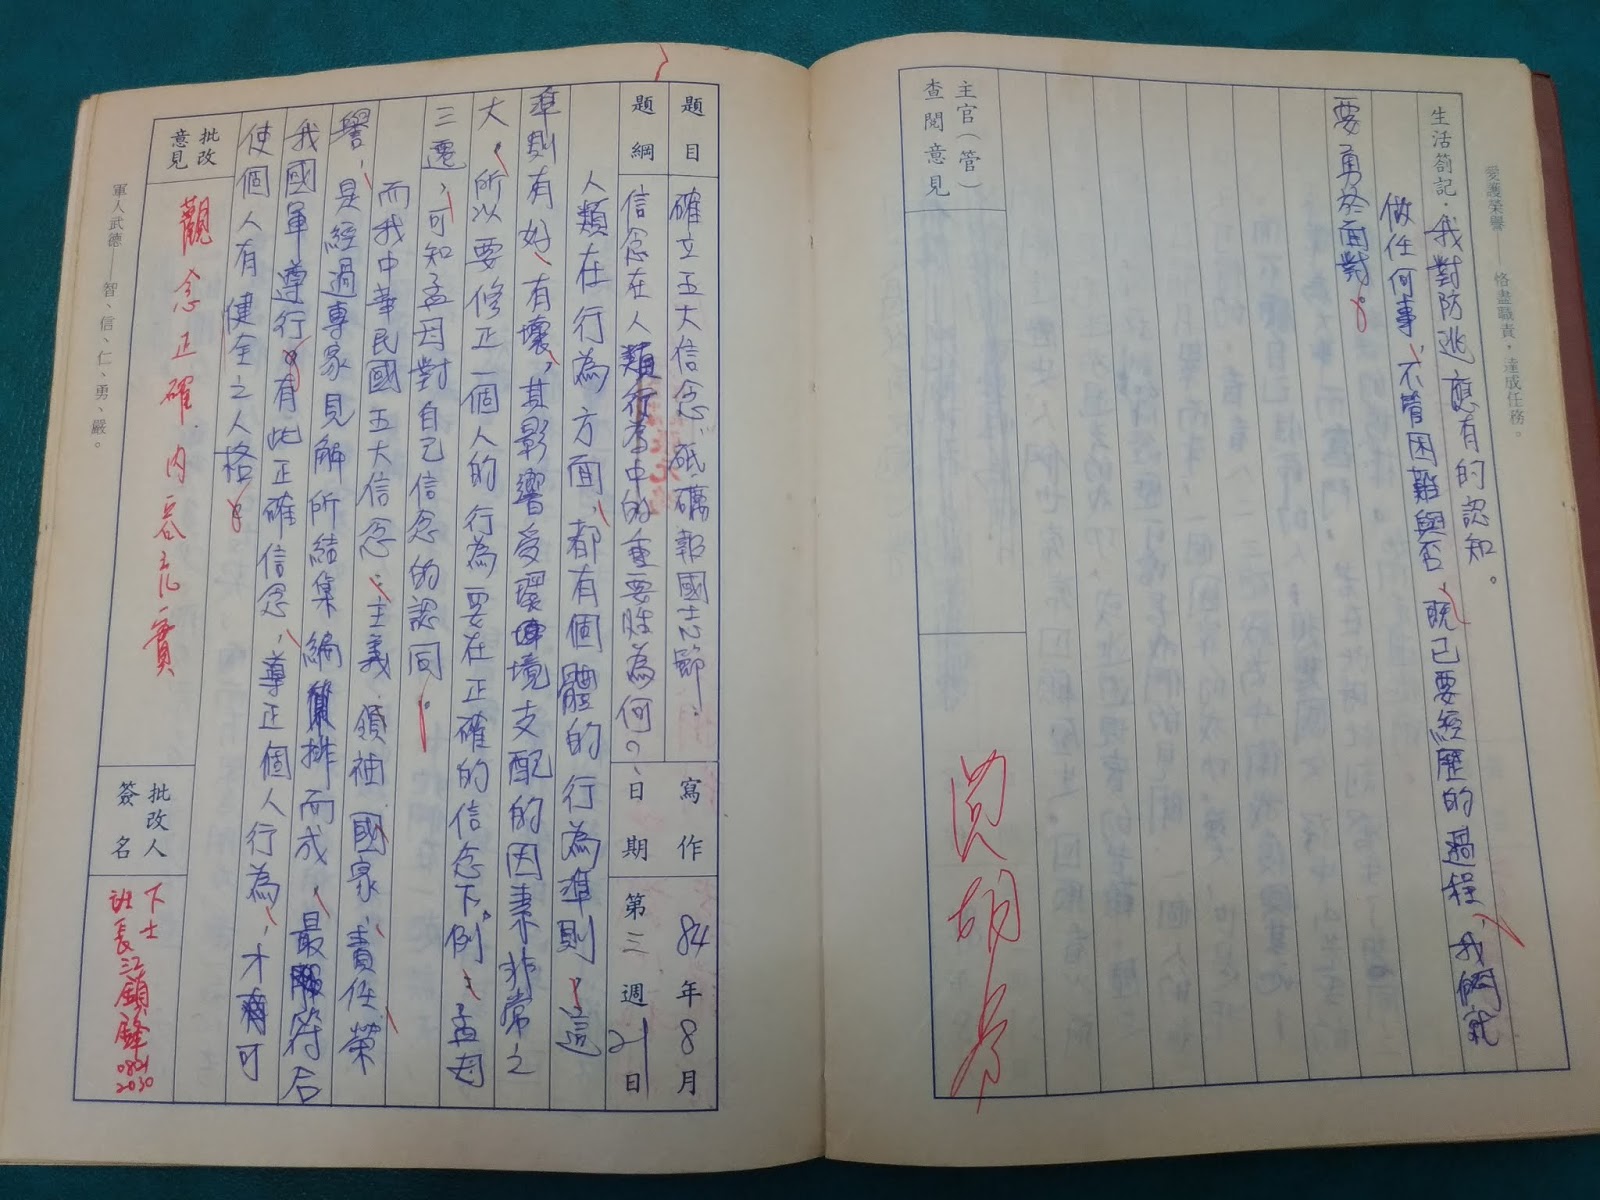 愛護榮譽——恪盡職責,達成任務。
生活劄記.我對防逃應有的認知。
做任何事、不管困難與否、既已要經歷的過程、我們就
要勇於面對。
主官(管)
查閱意見
題目
確立五大信念,砥礪報國志節.
寫作
84年8月
題綱
信念在人類行為中的重要性為何?
日期
第三週21日
人類在行為方面、都有個體的行為準則,這
準則有好、有壞、其影響受環境支配的因素非常之
大,所以要修正一個人的行為要在正確的信念下,例:孟母
三遷、可知孟母對自己信念的認同。
而我中華民國五大信念:主義、領袖、國家、責任、榮
譽、是經過專家見解所結集編排而成、最符合
我國軍遵行。有此正確信念、導正個人行為、才可
使個人有健全之人格。
批改
意見
觀念正確.內容充實
批改人
簽名
下士
班長江鎮鋒
0821
2030
軍人武德——智、信、仁、勇、嚴。